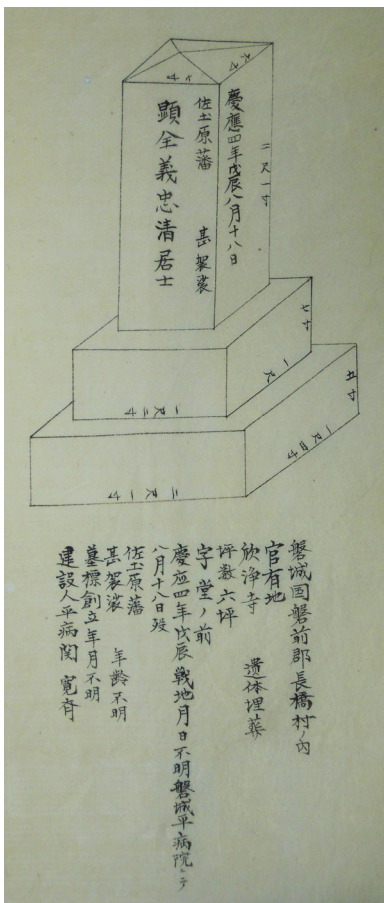 二尺一寸
慶應四年戊辰八月十八日
佐土原藩　甚袈裟
顯全義忠清居士
七寸
七寸
一尺
一尺三寸
五寸
一尺四寸
二尺一寸
磐城国磐前郡長橋村ノ内
官有地
欣浄寺　遺体埋葬
坪数六坪
字堂ノ前
慶應四年戊辰戰地月日不明磐城平病院ニテ
八月十八日歿
佐土原藩
甚袈裟　年齢不明
墓標創立年月不明
建設人平病関寛斉